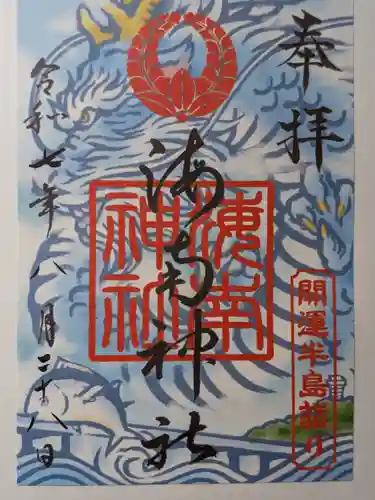 奉拝
開運半島詣り
海南神社
海南神社
令和七年八月二十八日